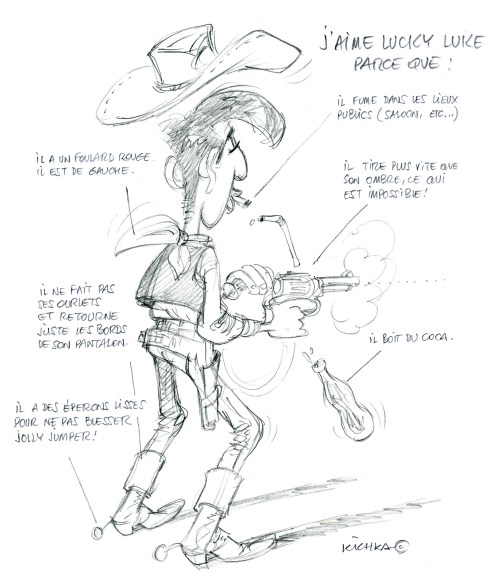 J'AIME LUCKY LUKE
PARCE QUE :
IL FUME DANS LES LIEUX
PUBLICS (SALOON, ETC...)
IL A UN FOULARD ROUGE.
IL EST DE GAUCHE.
IL TIRE PLUS VITE QUE
SON OMBRE, CE QUI
EST IMPOSSIBLE!
IL NE FAIT PAS
SES OURLETS
ET RETOURNE
JUSTE LES BORDS
DE SON PANTALON.
IL BOIT DU COCA.
IL A DES ÉPERONS LISSES
POUR NE PAS BLESSER
JOLLY JUMPER!
KICHKA ©